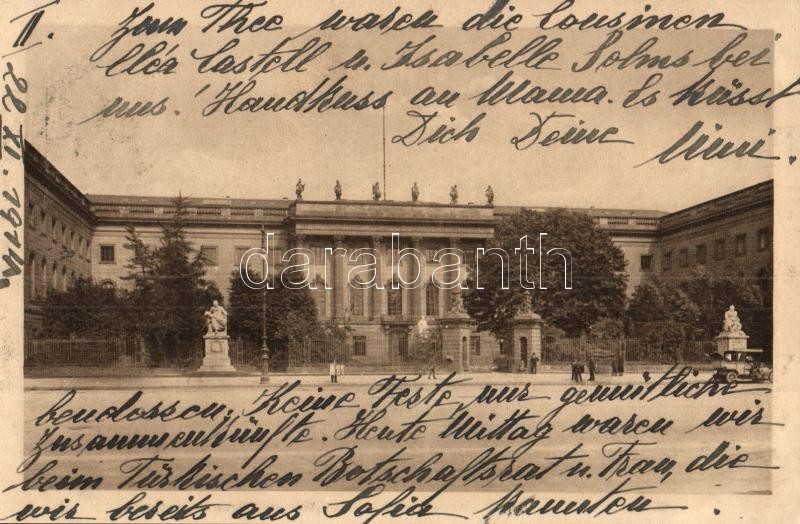 II.
22 XI. 1914.
Zum Thee waren die Cousinen
Castell u. Isabelle Solms bei
uns. Handkuss an Mama. Es küsst
Dich Deine Mimi.
darabanth
bendessen. Keine Feste, nur gemütliche
Zusammenkünfte. Heute Mittag waren wir
beim Türkischen Botschaftsrat u. Frau, die
wir bereits aus Sofia kannten.